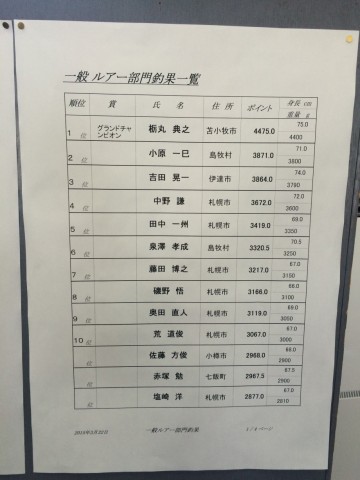 一般 ルアー部門釣果一覧
順位 賞 氏 名 住 所 ポイント 身長 cm 重量 g
1 位 グランドチャンピオン 栃丸 典之 苫小牧市 4475.0 75.0 4400
2 位 小原 一巳 島牧村 3871.0 71.0 3800
3 位 吉田 晃一 伊達市 3864.0 74.0 3790
4 位 中野 謙 札幌市 3672.0 72.0 3600
5 位 田中 一州 札幌市 3419.0 69.0 3350
6 位 泉澤 孝成 島牧村 3320.5 70.5 3250
7 位 藤田 博之 札幌市 3217.0 67.0 3150
8 位 磯野 悟 札幌市 3166.0 66.0 3100
9 位 奥田 直人 札幌市 3119.0 69.0 3050
10 位 荒 道俊 札幌市 3067.0 67.0 3000
位 佐藤 方俊 小樽市 2968.0 68.0 2900
位 赤塚 勉 七飯町 2967.5 67.5 2900
位 塩崎 洋 札幌市 2877.0 67.0 2810
一般ルアー部門釣果
1 / 4 ページ